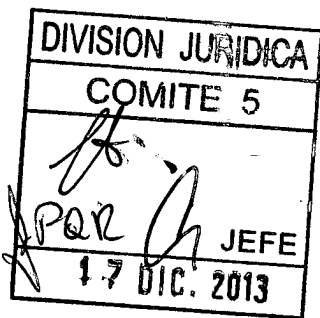 DIVISION JURIDICA
COMITE 5
PQR JEFE
17 DIC. 2013